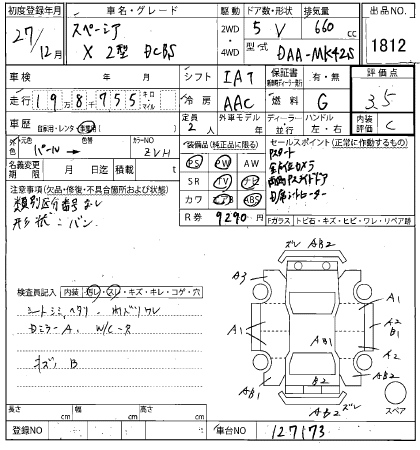 初度登録年月 車名・グレード 駆動 ドア数・形状 排気量 出品NO.
27/12月 スペーシア X 2型 DCBS 2WD・4WD 5 V 660 cc 1812
型式 DAA-MK42S
車検 年 月 シフト IAT 保証書 有・無 評価点
走行 198755 キロ マイル 冷房 AAC 燃料 G 3.5
車歴 自家用・レンタ 定員 2人 外車モデル 年 ディーラー 並行 ハンドル 左・右 内装評価 C
元色 色 パール カラーNO ZVH 装備品(純正品に限る) セールスポイント(正常に作動するもの)
名義変更期限 月 日 積載 t PS PW Pスタート
注意事項(欠品・修復・不具合箇所および状態) SR TV ナビ 全方位カメラ
類別区分番号なし カワ ABS 両側Pスライドドア
形状:バン R券 9290円 D席シートヒーター
Fガラス トビ石・キズ・ヒビ・ワレ・リペア跡
検査員記入 内装 汚レ・スレ・キズ・キレ・コゲ・穴
シートシミ ヘタリ 内ズリワレ
DミラーA W/C-R
キズ B
ズレ AB2
A3
A1
A1
AB1
A2
B1
A2
A1
B1
B2
A2
AB2 ズレ
スペア
長さ cm 幅 cm 高さ cm
登録NO 車台NO 127173